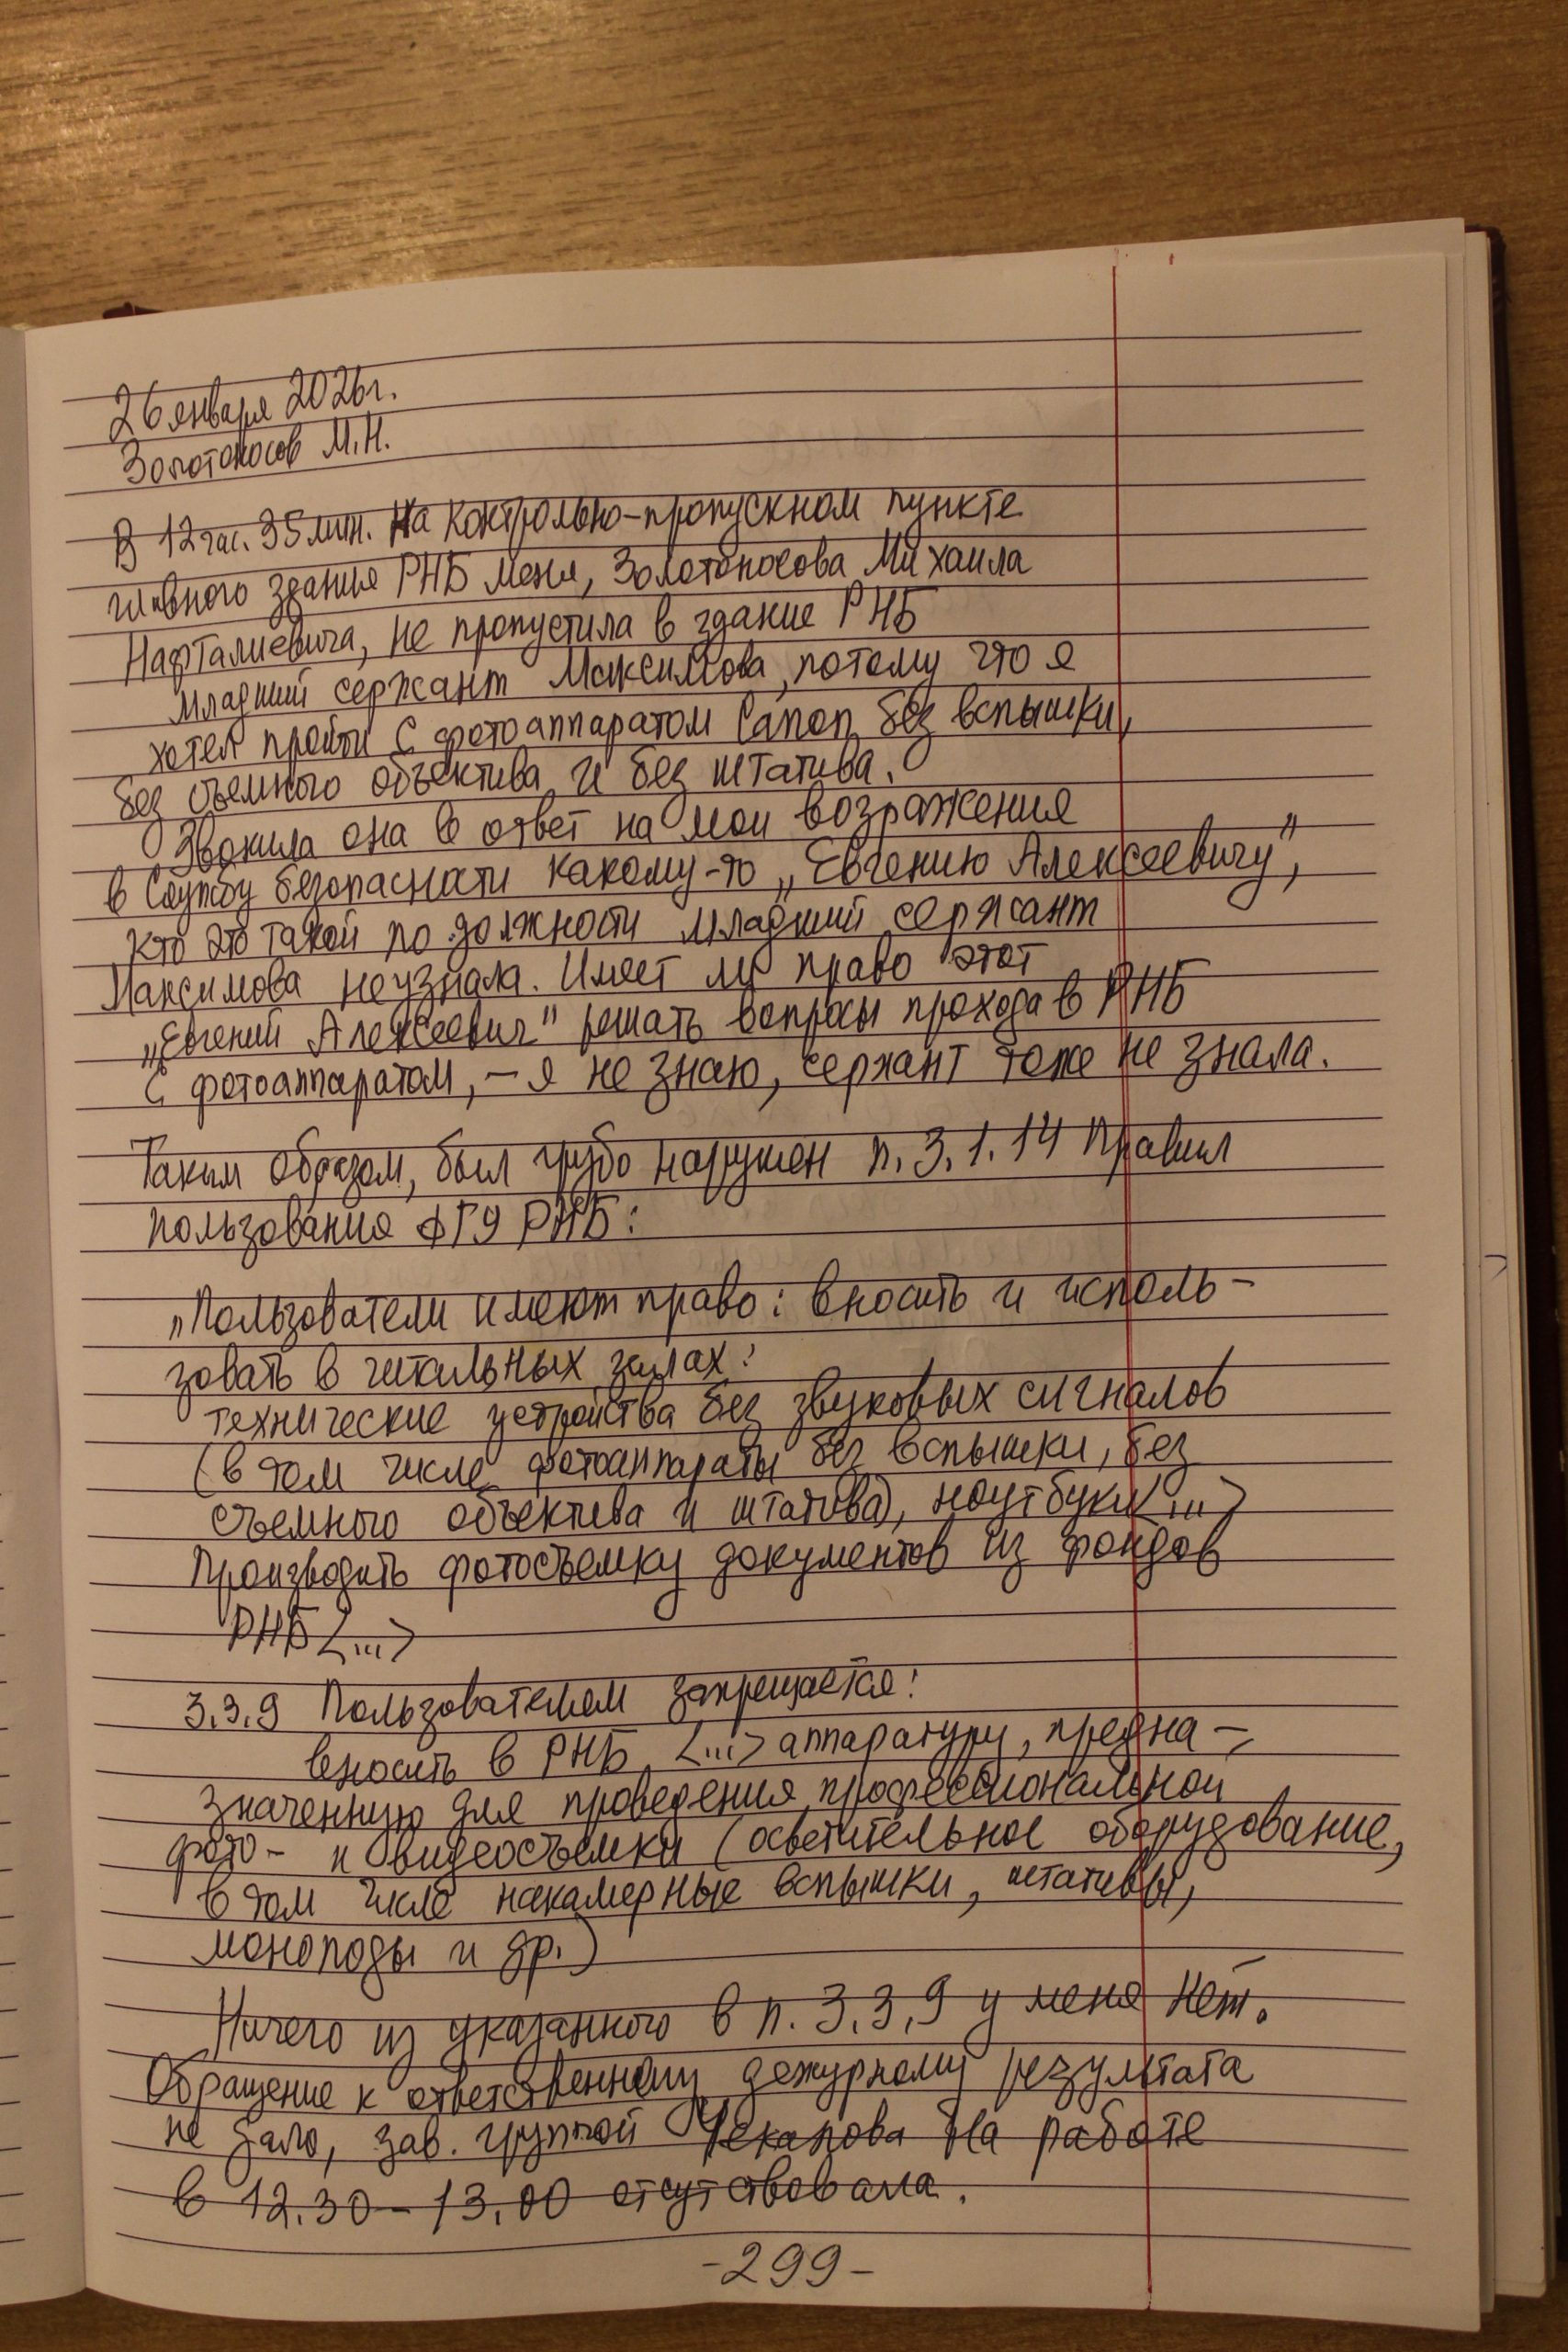 26 января 2026г.
Золотоносов М.Н.
В 12 час. 35 мин. На контрольно-пропускном пункте
главного здания РНБ меня, Золотоносова Михаила
Нафталиевича, не пропустила в здание РНБ
младший сержант Максимова, потому что я
хотел пройти с фотоаппаратом Canon без вспышки,
без съемного объектива и без штатива.
Звонила она в ответ на мои возражения
в Службу безопасности какому-то „Евгению Алексеевичу",
кто это такой по должности младший сержант
Максимова не узнала. Имеет ли право этот
„Евгений Алексеевич" решать вопросы прохода в РНБ
с фотоаппаратом, – я не знаю, сержант тоже не знала.
Таким образом, был грубо нарушен п. 3.1.14 Правил
пользования ФГУ РНБ:
„Пользователи имеют право: вносить и исполь-
зовать в читальных залах:
технические устройства без звуковых сигналов
(в том числе фотоаппараты без вспышки, без
съемного объектива и штатива), ноутбуки <...>
Производить фотосъемку документов из фондов
РНБ <...>
3.3.9 Пользователям запрещается:
вносить в РНБ <...> аппаратуру, предна-
значенную для проведения профессиональной
фото- и видеосъемки (осветительное оборудование,
в том числе накамерные вспышки, штативы,
моноподы и др.)
Ничего из указанного в п. 3.3.9 у меня нет.
Обращение к ответственному дежурному результата
не дало, зав. группой Чекапова на работе
в 12.30 – 13.00 отсутствовала.
-299-